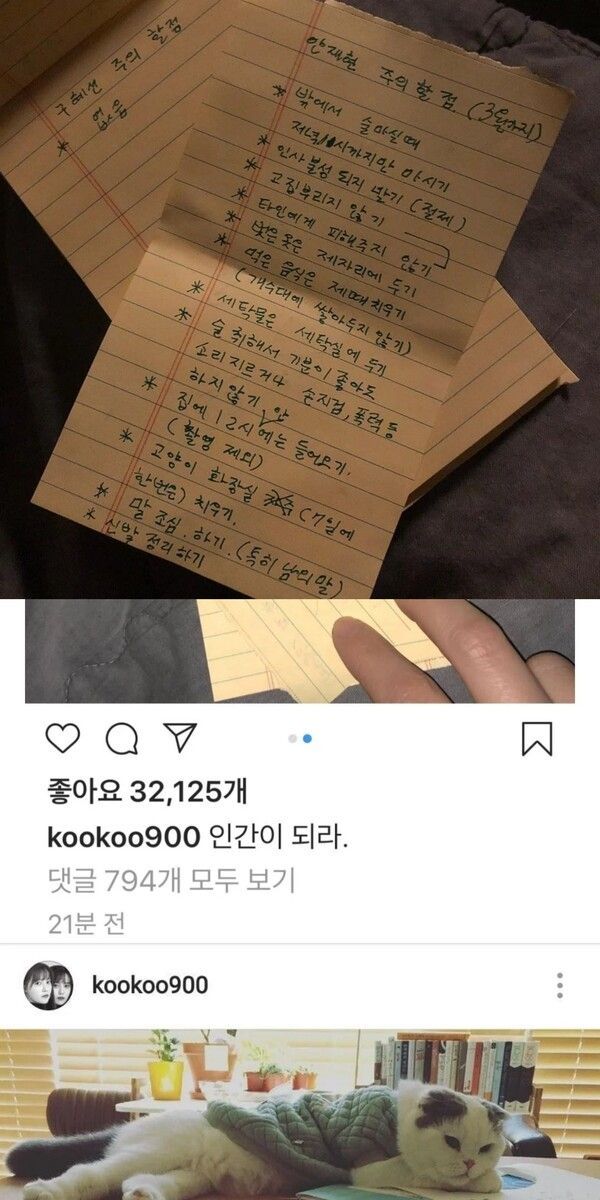 구혜선 주의 할점
* 없음
안재현 주의 할 점. (3월까지)
* 밖에서 술마실때
저녁 11시까지만 마시기
* 인사불성 되지 말기 (절제)
* 고집부리지 않기
* 타인에게 피해주지 않기
* 벗은 옷은 제자리에 두기
* 먹은 음식은 제때 치우기
(개수대에 쌓아두지 않기)
* 세탁물은 세탁실에 두기
* 술 취해서 기분이 좋아도
소리 지르거나 손지검, 폭력 등
하지않기
* 집에 12시 안에는 들어오기.
(촬영 제외)
* 고양이 화장실 (7일에
한번은) 치우기.
* 말 조심. 하기. (특히 남의 말)
* 신발 정리 하기
좋아요 32,125개
kookoo900 인간이 되라.
댓글 794개 모두 보기
21분 전
kookoo900